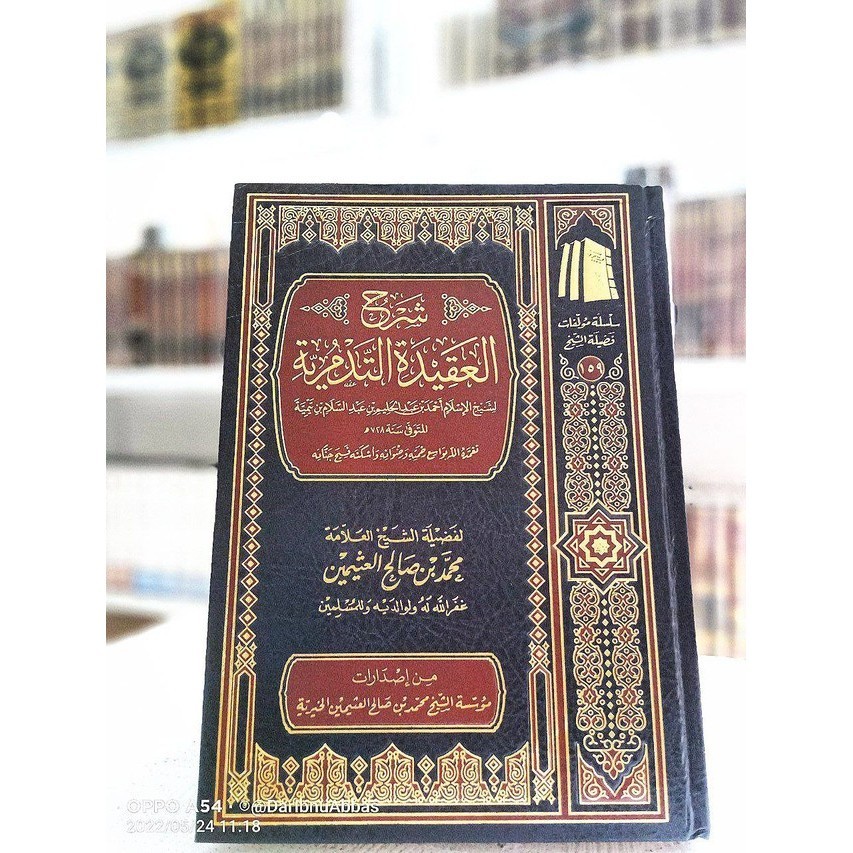 شرح
العقيدة التدمرية
لشيخ الإسلام أحمد بن عبد الحليم بن عبد السلام بن تيمية
المتوفى سنة ٧٢٨ هـ
تغمده الله بواسع رحمته ورضوانه وأسكنه فسيح جناته
لفضيلة الشيخ العلامة
محمد بن صالح العثيمين
غفر الله له ولوالديه وللمسلمين
من إصدارات
مؤسسة الشيخ محمد بن صالح العثيمين الخيرية
سلسلة مؤلفات
فضيلة الشيخ
١٥٩
OPPO A54 · ©@DaribnuAbbas
2022/05/24 11:18